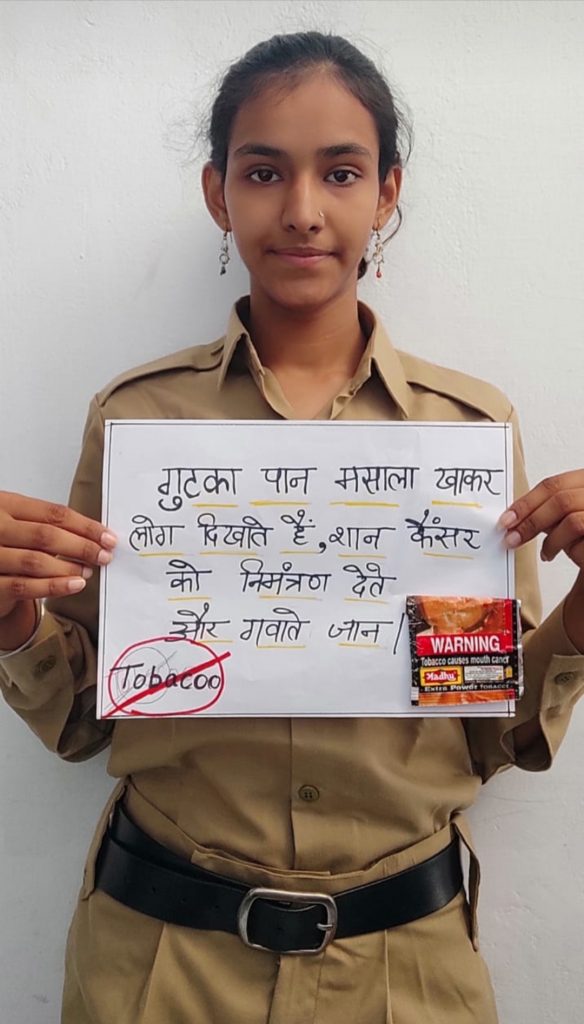 गुटका पान मसाला खाकर
लोग दिखाते हैं, शान कैंसर
को निमंत्रण देते
और गवाते जान/
Tobacoo
WARNING
Tobacco causes mouth cancer
Madhu
EXTRA POWER TOBACCO